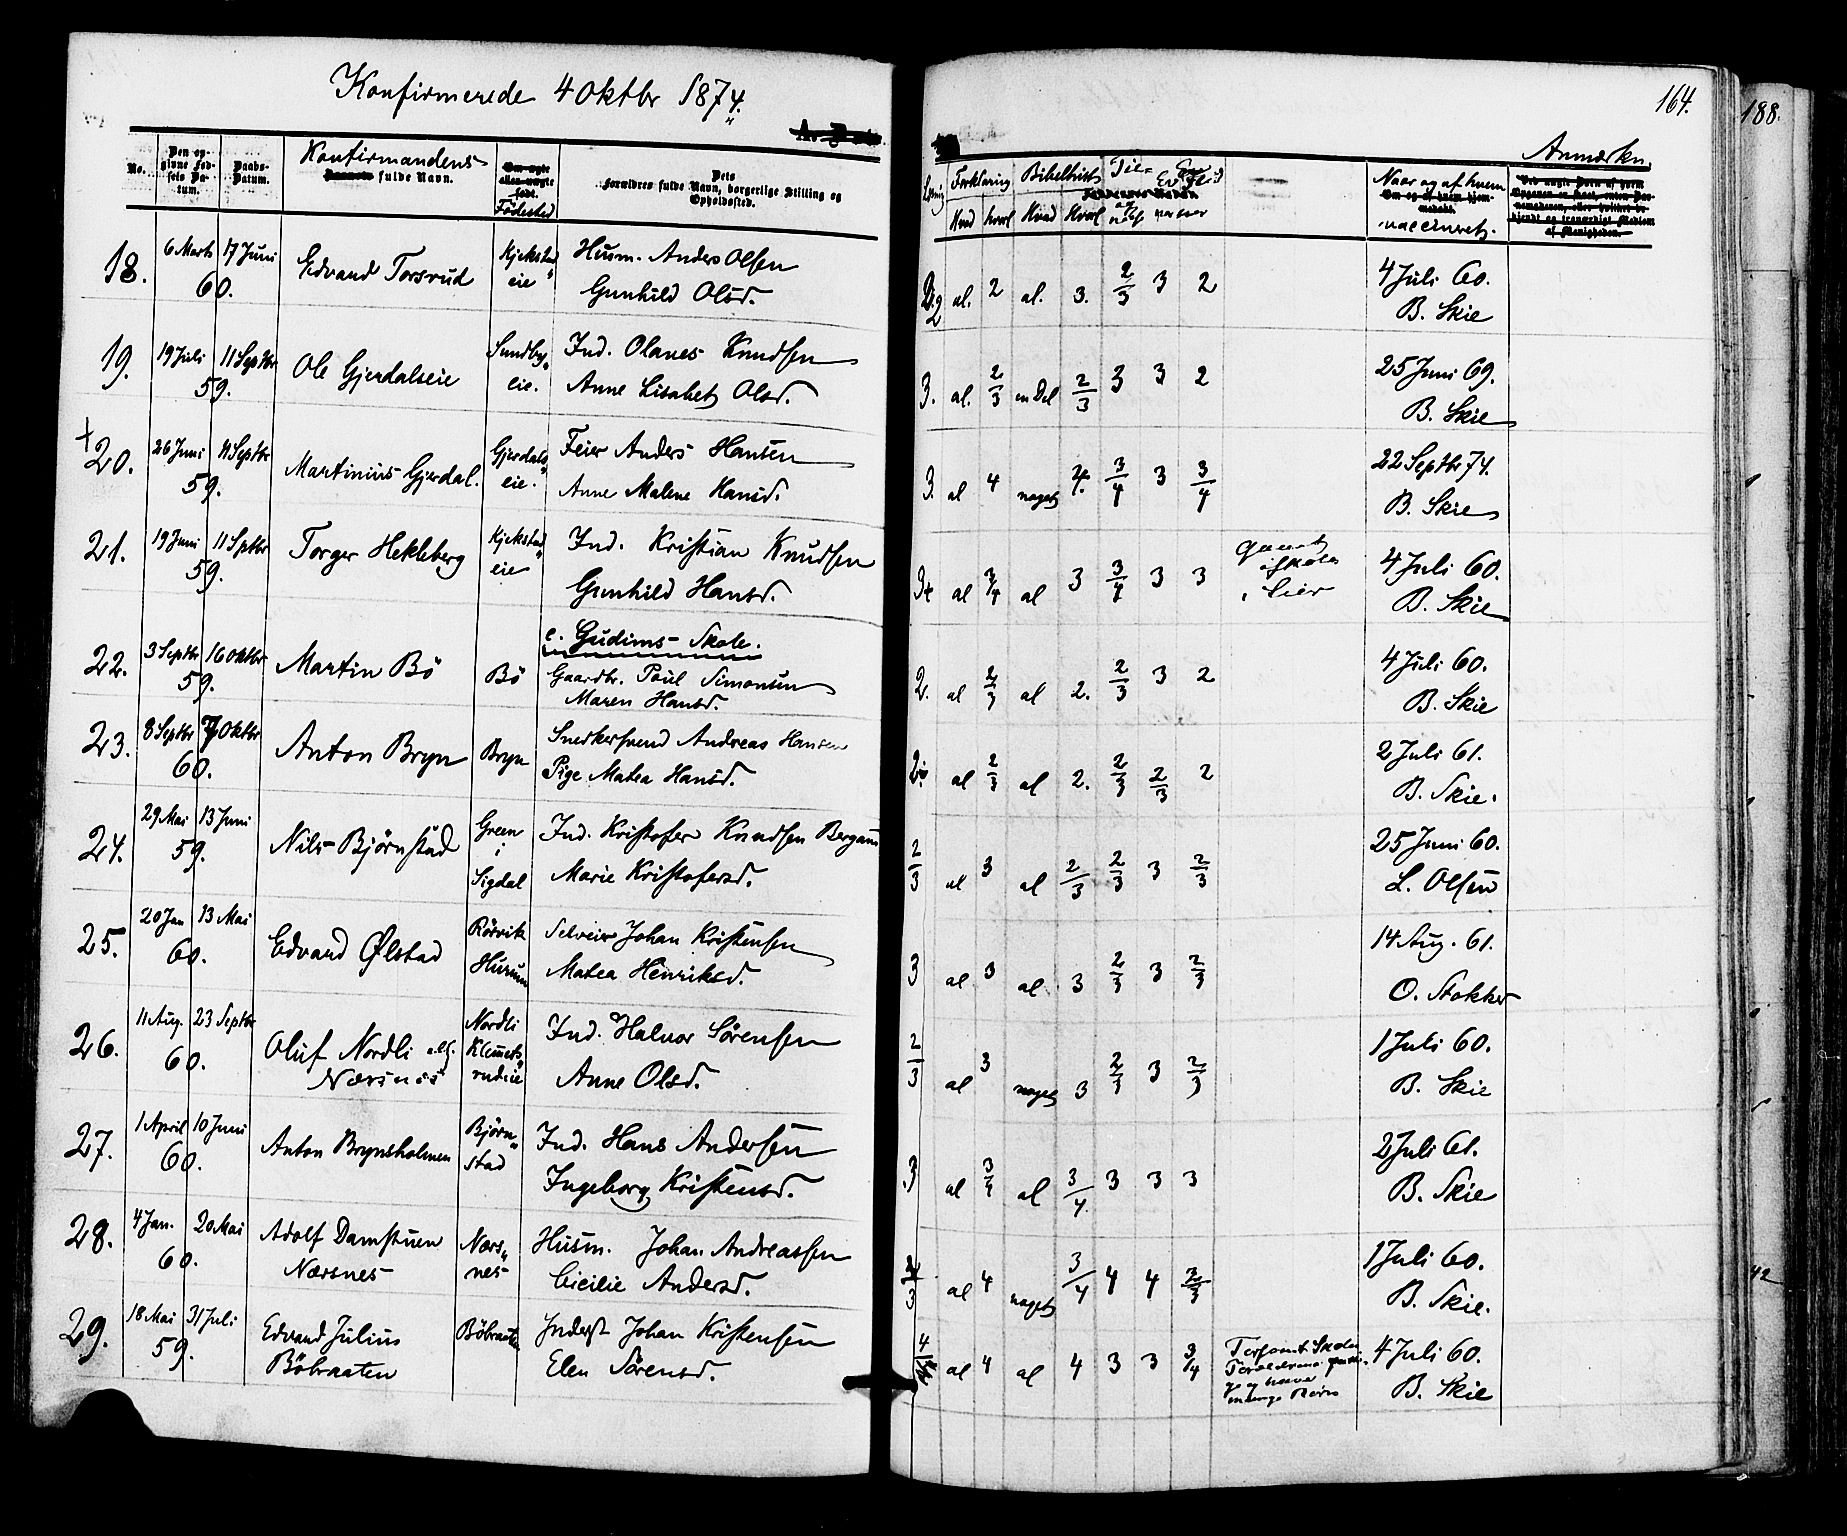 Konfirmerede 4 Oktbr 1874.
164.
188.
No.
Den opgivne Fødsels Datum.
Daabs-Datum.
Konfirmandens fulde Navn.
Fødested
Dets Forældres fulde Navn, borgerlige Stilling og Opholdssted.
Forklaring
Hvad hvorl
Bibelhist
Hvad Hvorl
Naar og af hvem vaccineret.
Anmærkn.
18. 6 Marts 17 Juni 60. Edvard Torsrud Kjekstad eie Husm. Anders Olsen
Gunhild Olsd.
2 al. 2 al. 3. 2/3 3 2 4 Juli 60.
B. Skie
19. 19 Juli 11 Septbr 59. Ole Gjerdalseie Sundby eie. Ind. Olaves Knudsen
Anne Lisabet Olsd.
3. al. 2/3 en Del 2/3 3 3 2 25 Juni 69.
B. Skie
+ 20. 26 Juni 11 Septbr 59. Martinius Gjerdal. Gjerdals eie. Feier Anders Hansen
Anne Malene Hansd.
3. al 4 noget 4. 3/4 3 3/4 22 Septbr 74.
B. Skie
21. 19 Juni 11 Sptbr 59. Torger Hekleberg Kjekstad eie Ind. Kristian Knudsen
Gunhild Hansd.
al 3/4 al 3 3/4 3 3 i Lier 4 Juli 60.
B. Skie
c. Gudims Skole.
22. 3 Septbr 16 Oktbr 59. Martin Bö Bö Gaardbr. Poul Simonsen
Maren Hansd.
2. al 2/3 al 2. 2/3 3 2 4 Juli 60.
B. Skie
23. 8 Septbr 7 Oktbr 60. Anton Bryn Bryn Snedkersvend Andreas Hansen
Pige Matea Hansd.
2. al 2/3 al 2. 2/3 2/3 2 2 Juli 61.
B. Skie.
24. 29 Mai 13 Juni 59. Nils Bjørnstad Green i Sigdal Ind. Kristofer Knudsen
Marie Kristofersd.
2/3 al 3 al 2/3 2/3 3 2/3 25 Juni 60.
L. Olsen
25. 20 Jan 13 Mai 60. Edvard Ølstad Rövik Hurum Selveier Johan Kristensen
Matea Henriksd.
3 al 3 al 3 2/3 3 2/3 14 Aug. 61.
O. Stokker
26. 11 Aug. 23 Septbr 60. Oluf Nordli ell. Næsnes Nordli Klemetsrudeie Ind. Halvor Sörensen
Anne Olsd.
2/3 al 3 noget 3 2/3 3 2/3 1 Juli 60.
B. Skie
27. 1 April 10 Juni 60. Anton Brynsholmen Björnstad Ind. Hans Andersen
Ingeborg Kristensd.
3 al 3/4 al 3/4 3 3 3 2 Juli 61.
B. Skie
28. 4 Jan. 20 Mai 60. Adolf Damstuen Nærsnes Nærsnes Husm. Johan Andreassen
Cicilie Andersd.
al 4 noget 3/4 4 4 1 Juli 60.
B. Skie.
29. 18 Mai 31 Juli 59. Edvard Julius Böbraaten Böbraaten Inderst Johan Kristensen
Elen Sörensd.
al 4 al 4 3 3 3/4 Forsømt Skolen og mange Börn 4 Juli 60.
B. Skie
42